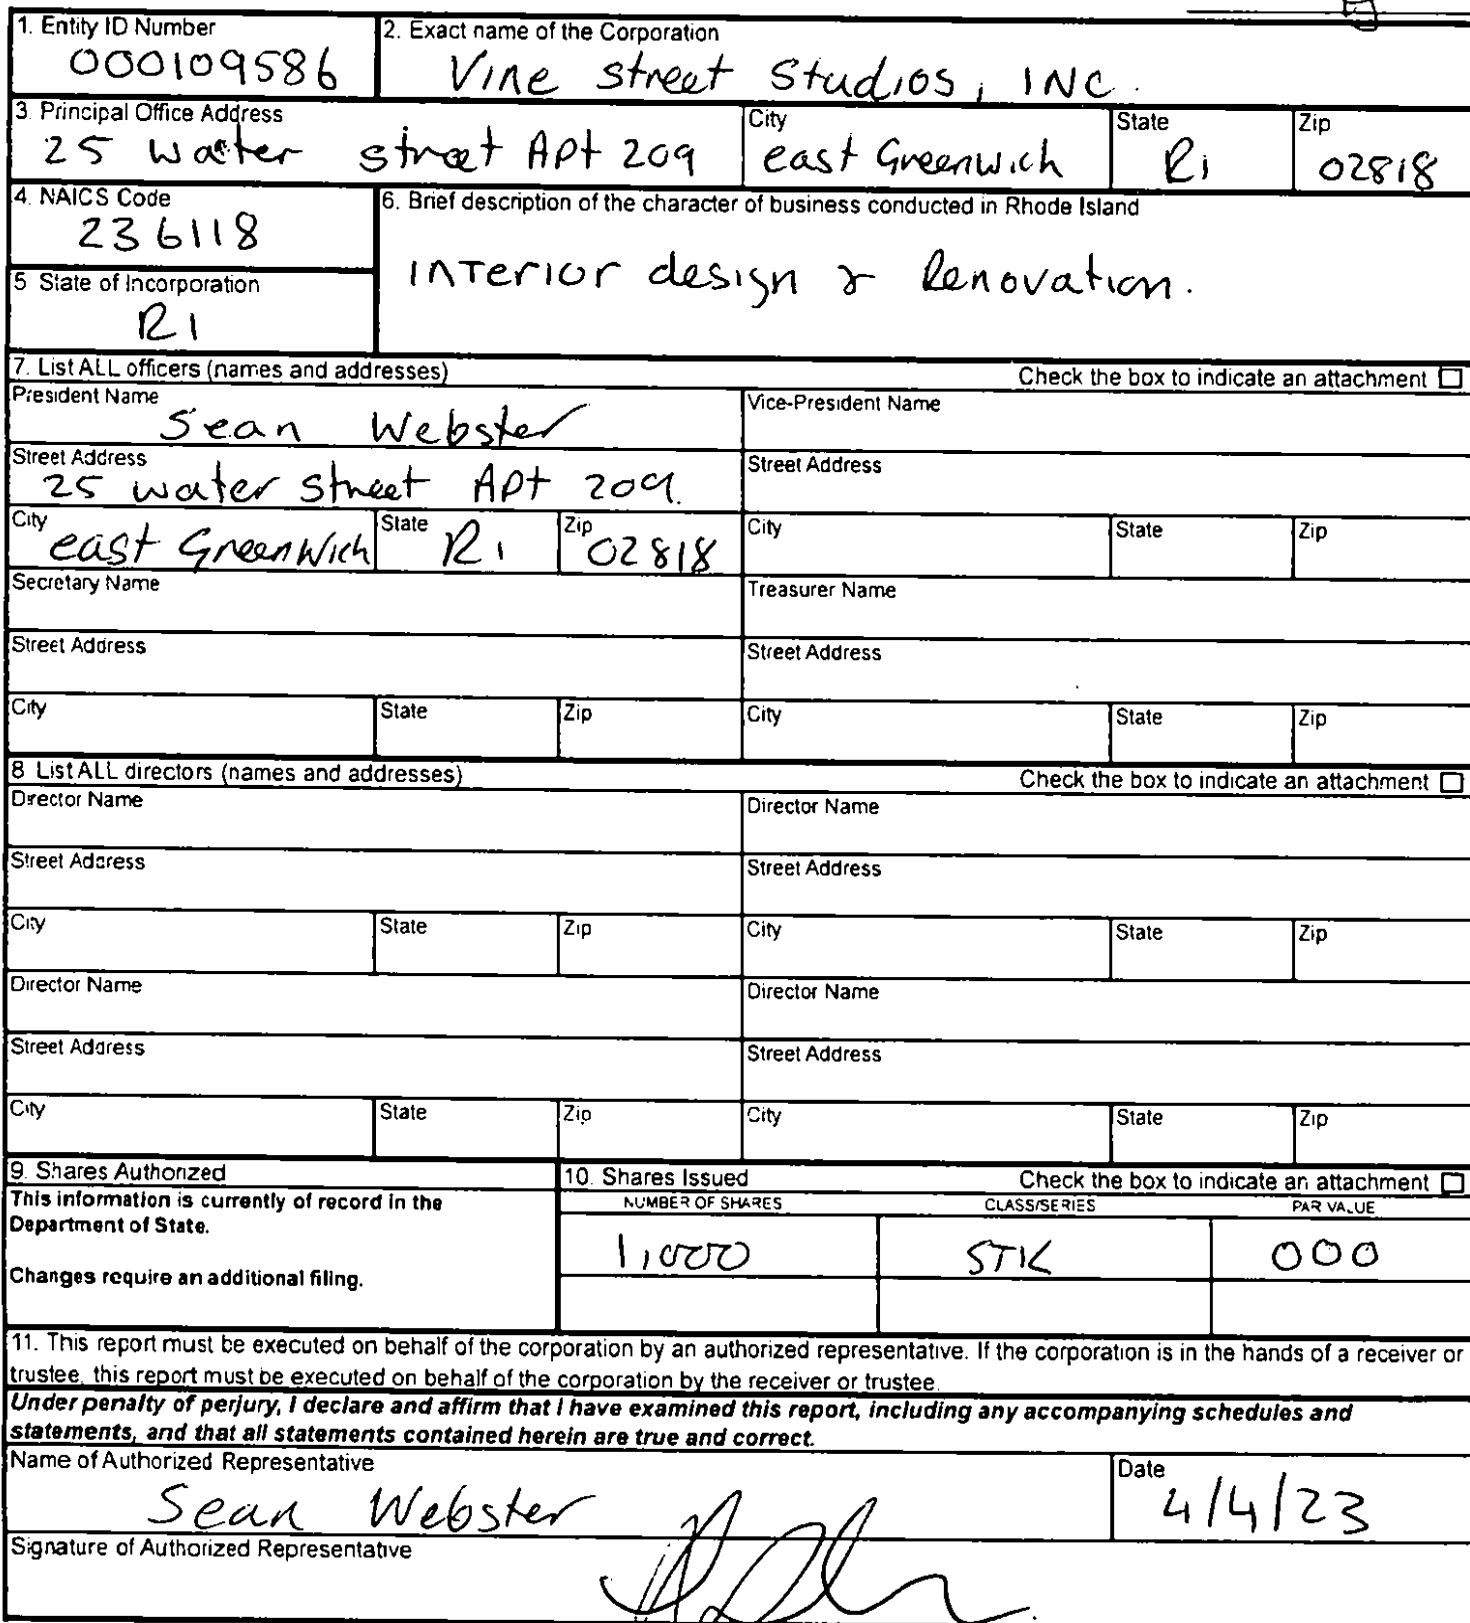 1. Entity ID Number
000109586
2. Exact name of the Corporation
Vine Street Studios, INC.
3. Principal Office Address
25 water street Apt 209
City
east Greenwich
State
Ri
Zip
02818
4. NAICS Code
236118
5 State of Incorporation
RI
6. Brief description of the character of business conducted in Rhode Island
INTERIOR design & Renovation.
7. List ALL officers (names and addresses)
Check the box to indicate an attachment
President Name
Sean Webster
Vice-President Name
Street Address
25 water street Apt 209.
Street Address
City
east Greenwich
State
Ri
Zip
02818
City
State
Zip
Secretary Name
Treasurer Name
Street Address
Street Address
City
State
Zip
City
State
Zip
8 List ALL directors (names and addresses)
Check the box to indicate an attachment
Director Name
Director Name
Street Address
Street Address
City
State
Zip
City
State
Zip
Director Name
Director Name
Street Address
Street Address
City
State
Zip
City
State
Zip
9. Shares Authorized
This information is currently of record in the
Department of State.
Changes require an additional filing.
10. Shares Issued
Check the box to indicate an attachment
NUMBER OF SHARES
CLASS/SERIES
PAR VALUE
1,000
STK
000
11. This report must be executed on behalf of the corporation by an authorized representative. If the corporation is in the hands of a receiver or
trustee, this report must be executed on behalf of the corporation by the receiver or trustee.
Under penalty of perjury, I declare and affirm that I have examined this report, including any accompanying schedules and
statements, and that all statements contained herein are true and correct.
Name of Authorized Representative
Sean Webster
Date
4/4/23
Signature of Authorized Representative